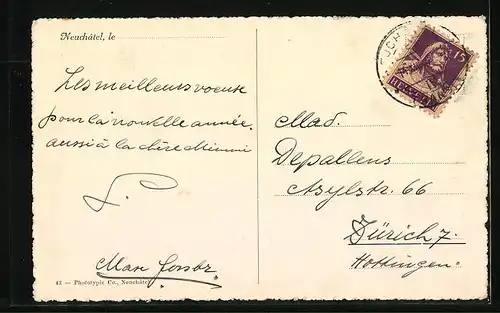 Neuchâtel, le
Les meilleurs voeux
pour la nouvelle année.
aussi à la chère Mimmi
Max
43 — Phototypie Co., Neuchâtel
15
HELVETIA
Mad.
Depallens
Asylstr. 66
Zürich 7.
Hottingen.